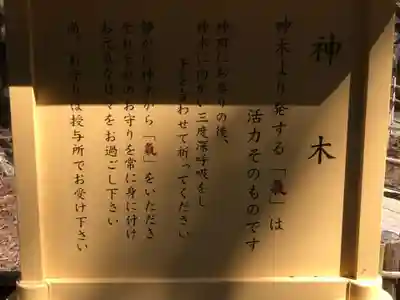 神木
神木より発する「氣」は
活力そのものです
神前にお参りの後、
神木に向かい三度深呼吸をし
手を合わせて祈ってください
静かに神木から「氣」をいただき
それぞれのお守りを常に身に付け
お元気な日々をお過ごし下さい
尚、お守りは授与所でお受け下さい